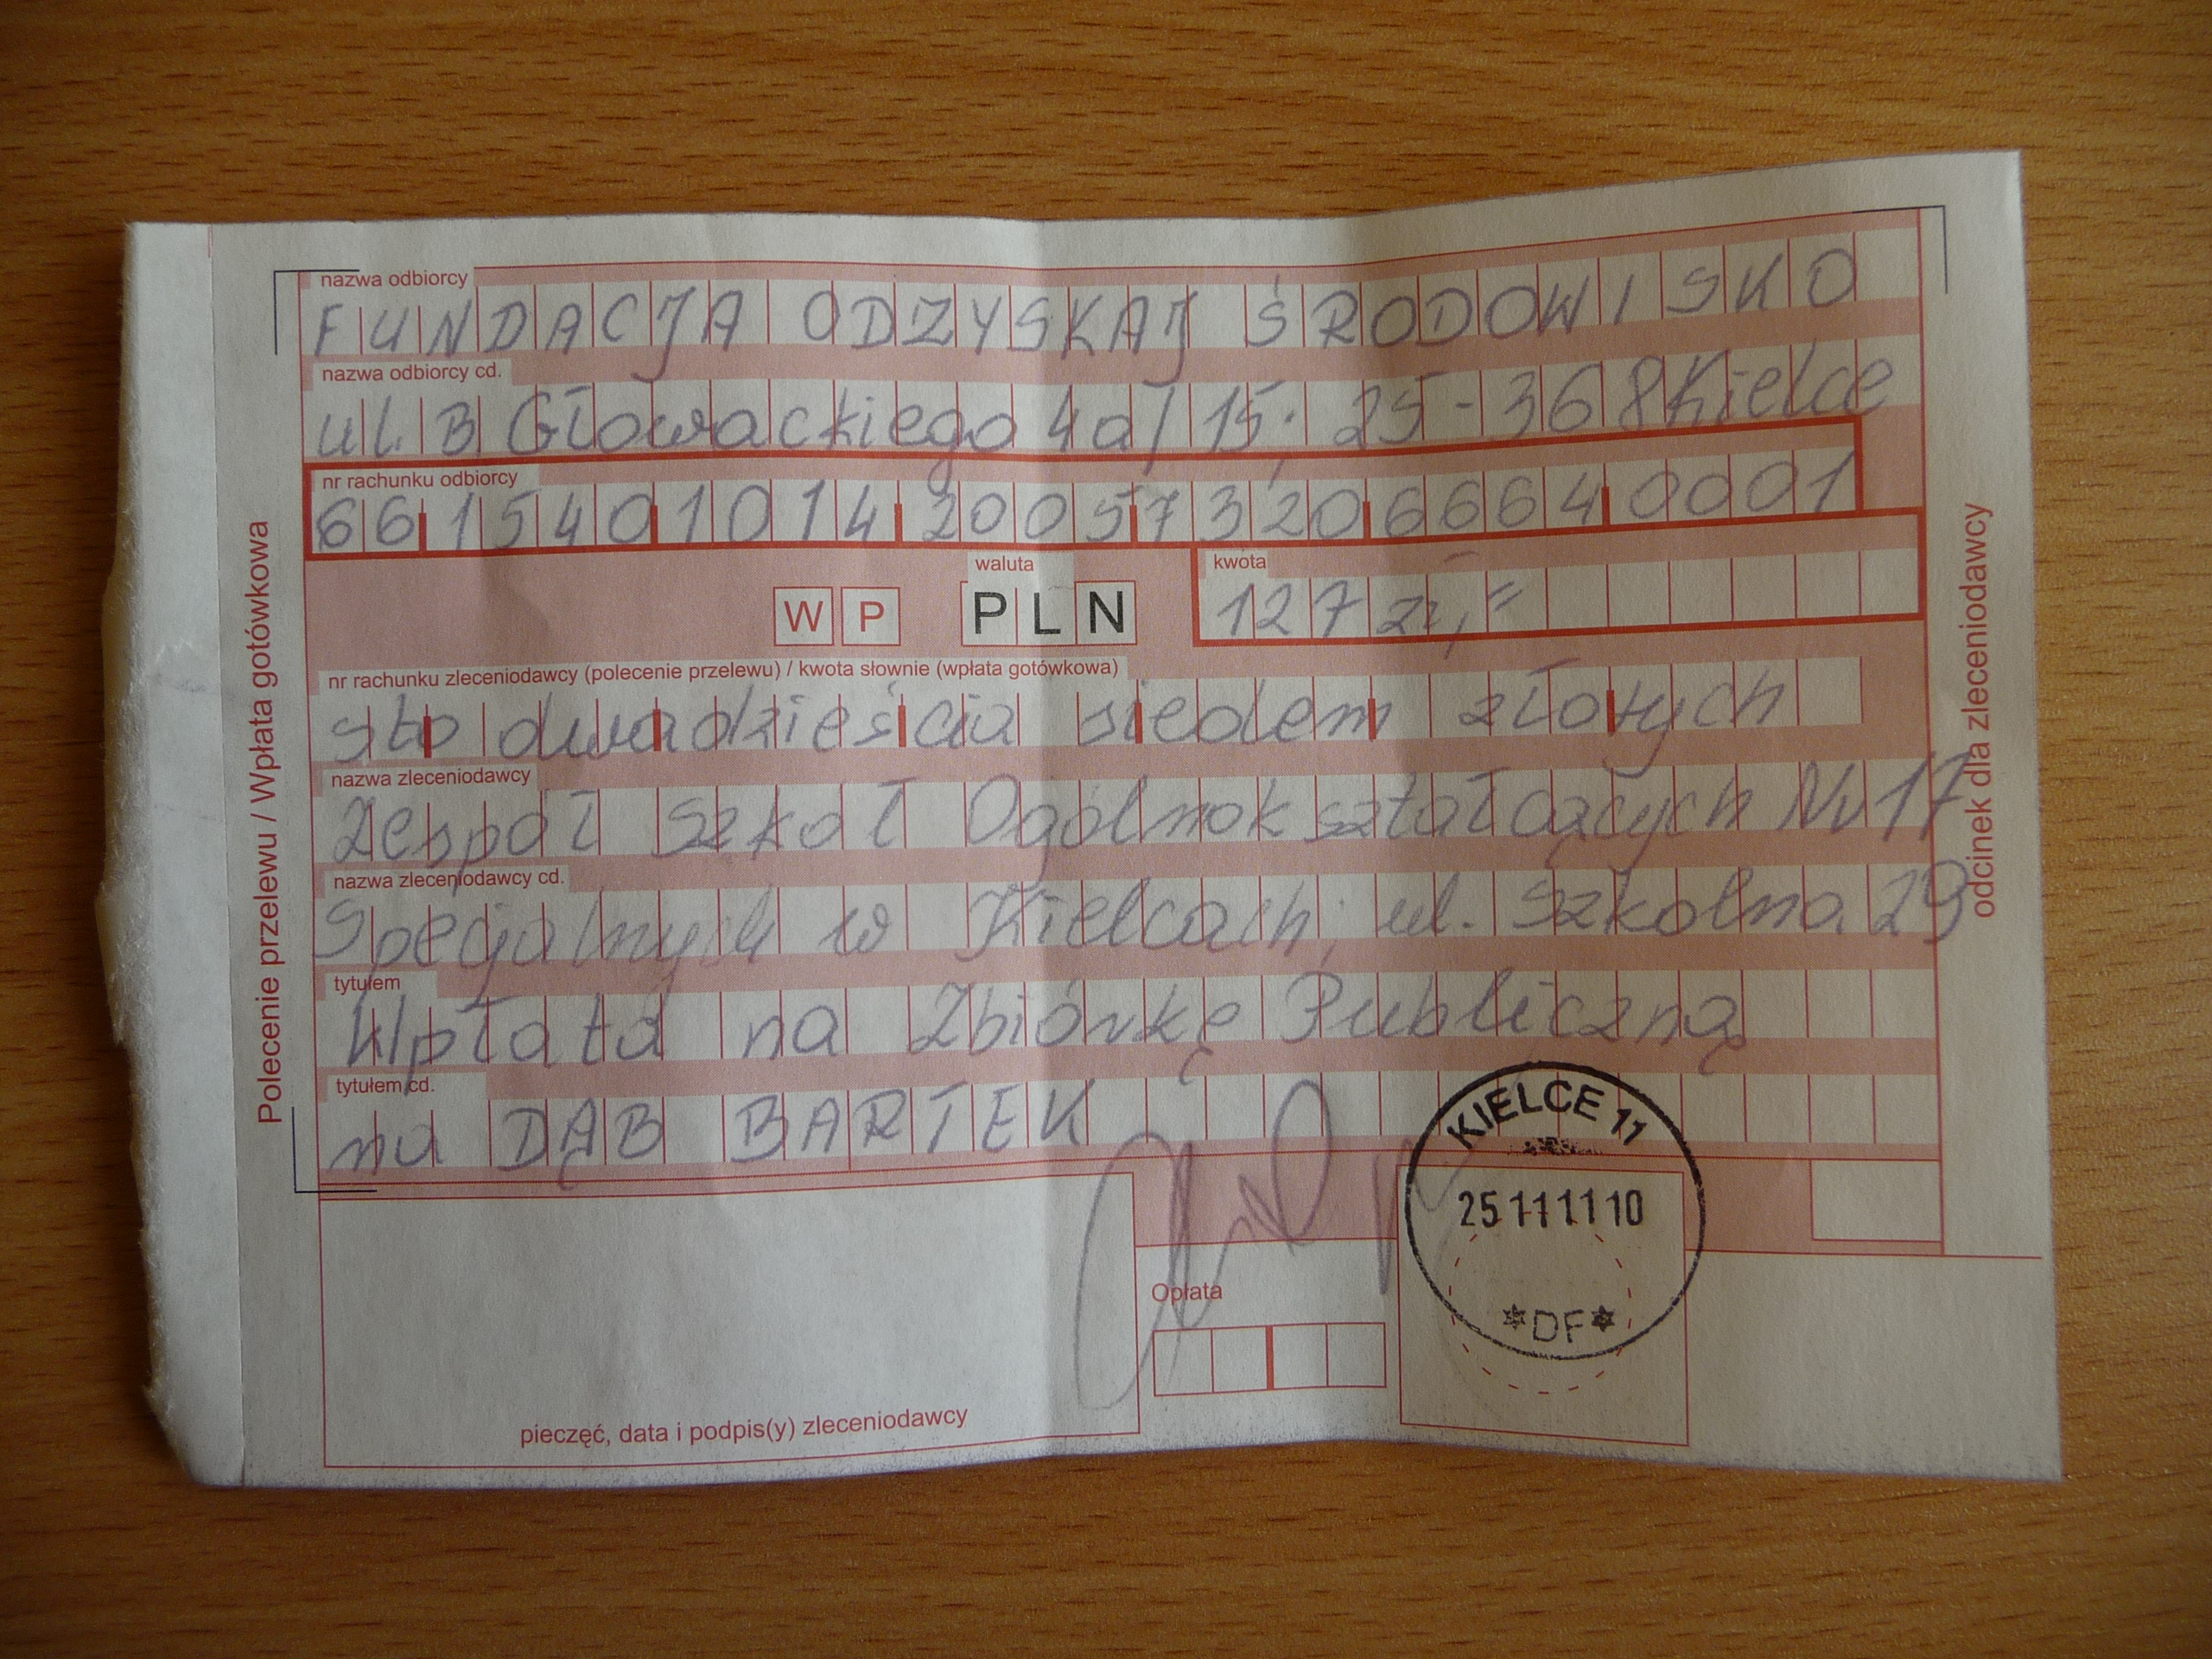 nazwa odbiorcy
FUNDACJA ODZYSKAJ ŚRODOWISKO
nazwa odbiorcy cd.
ul. B Głowackiego 4a/15; 25-368 Kielce
nr rachunku odbiorcy
66 1540 1014 2005 7320 6664 0001
waluta
kwota
W P PLN 127 zł,=
nr rachunku zleceniodawcy (polecenie przelewu) / kwota słownie (wpłata gotówkowa)
sto dwadzieścia siedem złotych
nazwa zleceniodawcy
Zespół Szkół Ogólnokształcących Nr 17
nazwa zleceniodawcy cd.
Specjalnych w Kielcach; ul. Szkolna 29
tytułem
Wpłata na Zbiórkę Publiczną
tytułem cd.
na DĄB BARTEK
Opłata
pieczęć, data i podpis(y) zleceniodawcy
KIELCE 11
25 11 11 10
*DF*
Polecenie przelewu / Wpłata gotówkowa
odcinek dla zleceniodawcy